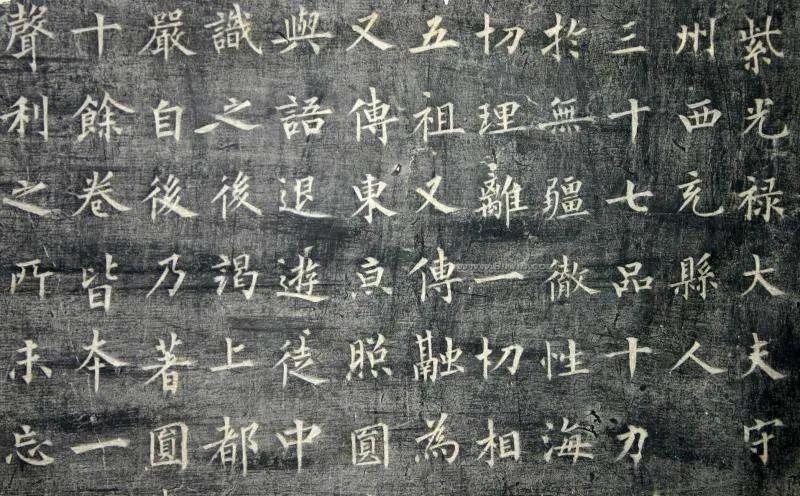 紫光禄大夫守
州西充縣人
三十七品十力
於無疆徹性海
切理離一切相
五祖又傳融為
又傳東京照圓
與語退遊徒中
識之後謁上都
嚴自後乃著圓
十餘卷皆本一
聲利之所未忘